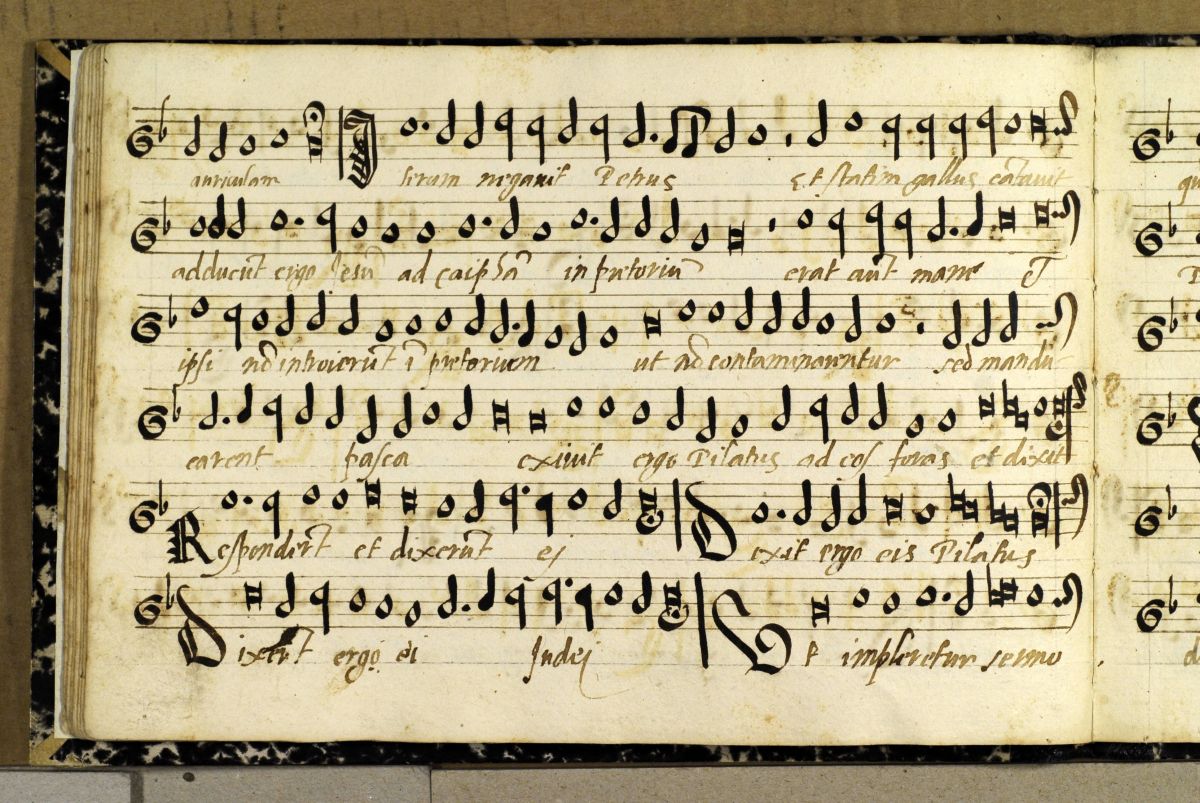 auriculam Iterum negauit Petrus Et statim gallus cātauit
adducūt ergo Iesū ad caiphā in pretoriū erat aūt mane et
ipsi nō introierūt ī pretorium ut nō contaminarentur sed mandu
carent pasca exiuit ergo Pilatus ad eos foras et dixit
Respondert̄ et dixerūt ei Dixit ergo eis Pilatus
Dixert̄ ergo ei Iudei Ut impleretur sermo